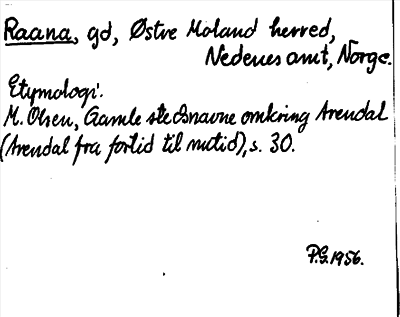 Raana, gd, Østre Moland herred,
Nedenes amt, Norge.
Etymologi.
M. Olsen, Gamle stedsnavne omkring Arendal
(Arendal fra fortid til nutid), s. 30.
P.G. 1956.